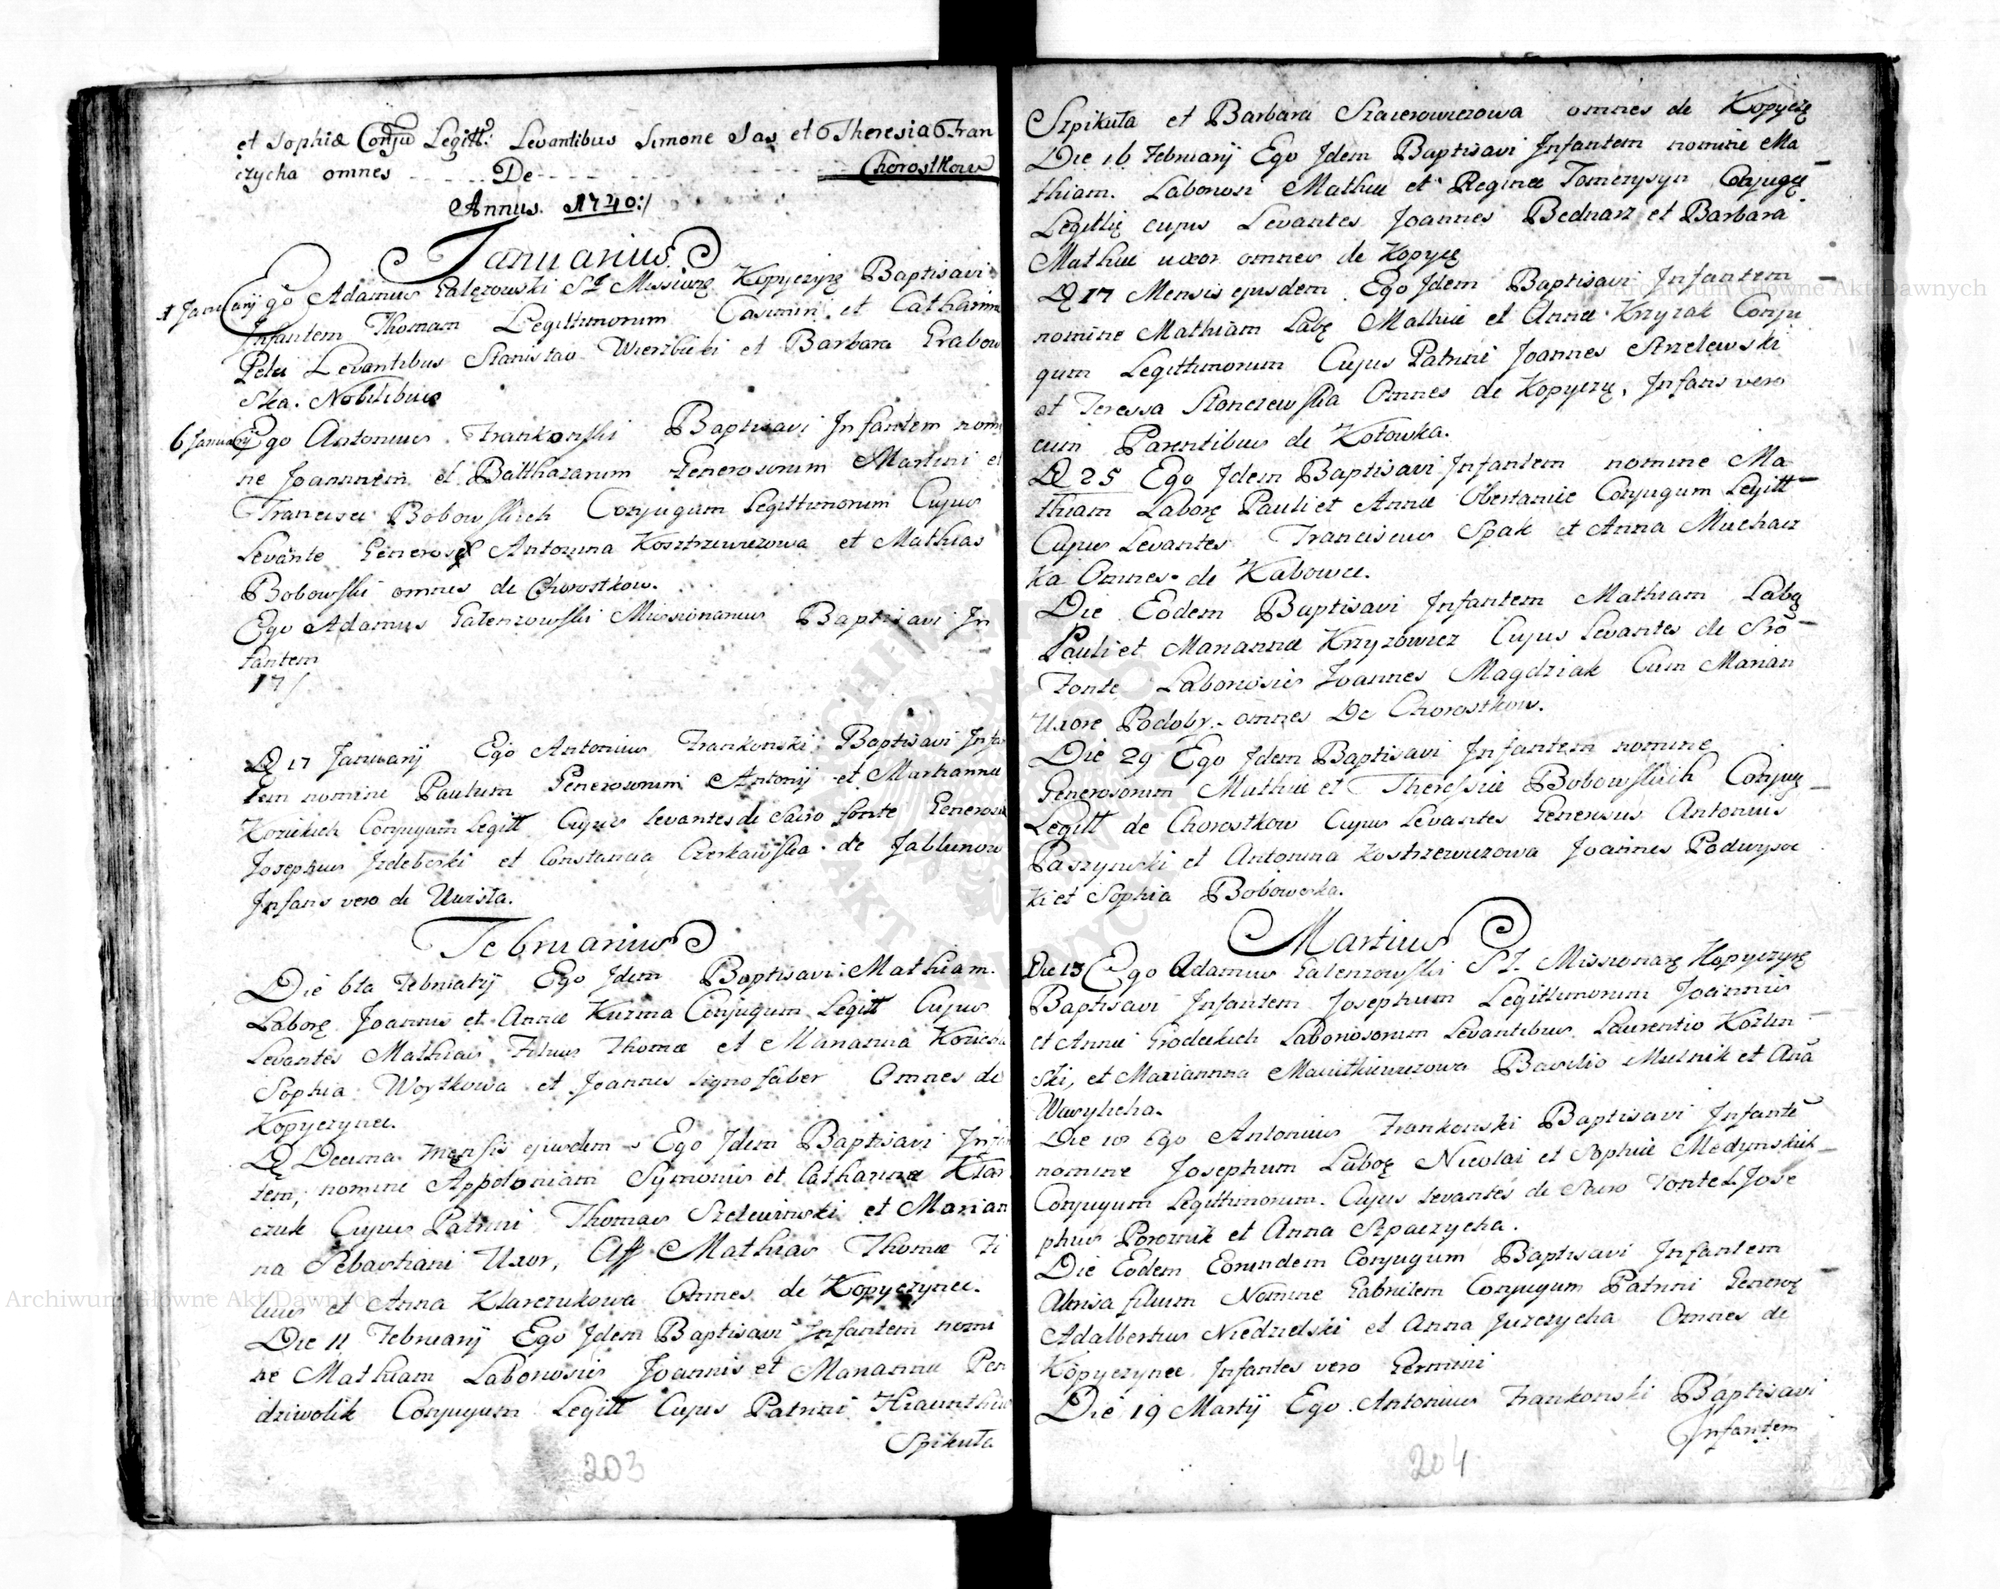 et Sophiæ Conju Legitt: Levantibus Simone Sas et Theresia Fran
czycha omnes De Chorostkow
Annus. 1740:/
Januarius
1 January Ego Adamus Galęzowski S.T. Missiona Kopyczynę Baptisavi
Infantem Thomam Legittimorum Casimiri et Catharin
Levantibus Stanislao Wierzbicki et Barbara Grabow
ska. Nobilibus
6 January Ego Antonius Frankonski Baptisavi Infantem nomi
ne Joannem et Balthazarum Generosorum Martini et
Francisci Bobowskich Conjugum Legittimorum Cujus
Levante Generosę Antonina Kosztrzewuzowa et Mathias
Bobowski omnes de Chorostkow.
Ego Adamus Galenzowski Missionarius Baptisavi In
fantem
17/
D 17 January Ego Antonius Frankonski Baptisavi Infa
tem nomine Paulum Generosorum Antonij et Marianna
Kozickich Conjugum Legitt Cujus levantes de Sacro fonte Generosu
Josephus et Constancia Czerkawska de Jablunow
Infans vero de Uwisla.
Februarius
Die 6ta Februarij Ego Idem Baptisavi Mathiam.
Laborę Joannis et Annæ Kuzma Conjugum Legitt Cujus
Levantes Mathias Filius Thomæ et Marianna
Sophia Woytkowa et Joannes Signo faber Omnes de
Kopyczyncee.
D Decima mensis ejusdem Ego Idem Baptisavi Infa
tem, nomine Appoloniam Symonis et Catharinæ Klar
czuk Cujus Patrini Thomas et Marian
na Sebastiani Uxor, Ass Mathias Thomæ Fi
lius et Anna Klarczukowa Omnes de Kopyczyncee.
Die 11 Februarij Ego Idem Baptisavi Infantem nomi
ne Mathiam Laboriosis Joannis et Mariannæ Pen
dziwolik Conjugum Legitt Cujus Patrini
Spikuła
203
Szpikuła et Barbara omnes de Kopyczę
Die 16 Februarij Ego Idem Baptisavi Infantem nomine Ma
thiam. Laboriosi Mathiæ et Reginæ Conjugę
Legittię cujus Levantes Joannes Bednarz et Barbara
Mathiæ uxor omnes de Kopyczę
D 17 Mensis ejusdem Ego Idem Baptisavi Infantem
nomine Mathiam Labę Mathiæ et Annæ Krzyzak Conju
gum Legittimorum Cujus Patrini Joannes Strzelewski
et Teressa Stanczewska Omnes de Kopyczę, Infans vero
cum Parentibus de Kotowka.
D 25 Ego Idem Baptisavi Infantem nomine Ma
thiam Laborę Pauli et Annæ Conjugum Legitt
Cujus Levantes Franciscus Spak et Anna Muchar
ka Omnes de Kabowce.
Die Eodem Baptisavi Infantem Mathiam Labę
Pauli et Mariannæ Krzyzowicz Cujus Levantes de Sro
Fonte Laboriosus Joannes Magdziak Cum Marian
Uxore Podobr. omnes De Chorostkow.
Die 29 Ego Idem Baptisavi Infantem nomine
Generosorum Mathiæ et Theressiæ Bobowskich Conjug
Legitt de Chorostkow Cujus Levantes Generosus Antonius
Paszynski et Antonina Kostrzewuzowa Joannes Podwyso
ki et Sophia Bobowska.
Martius
Die 13 Ego Adamus Galenzowski S.T. Missionarę Kopyczynę
Baptisavi Infantem Josephum Legittimorum Joannis
et Annæ Grodeckich Laboriosorum Levantibus Laurentio Kozlin
ski, et Mariannna Basilio Mulnik et Ana
Wasylicha.
Die 18 Ego Antonius Frankonski Baptisavi Infante
nomine Josephum Labę Nicolai et Sophiæ Medynskich
Conjugum Legittimorum. Cujus levantes de Sacro Fonte Jose
phus Poroznik et Anna Szpaczycha.
Die Eodem Eorundem Conjugum Baptisavi Infantem
filium Nomine Gabrielem Conjugum Patrini Generoę
Adalbertus Niedzielski et Anna Jurczycha Omnes de
Kopyczyncee Infantes vero Gemini
Die 19 Martij Ego Antonius Frankonski Baptisavi
Infantem
204